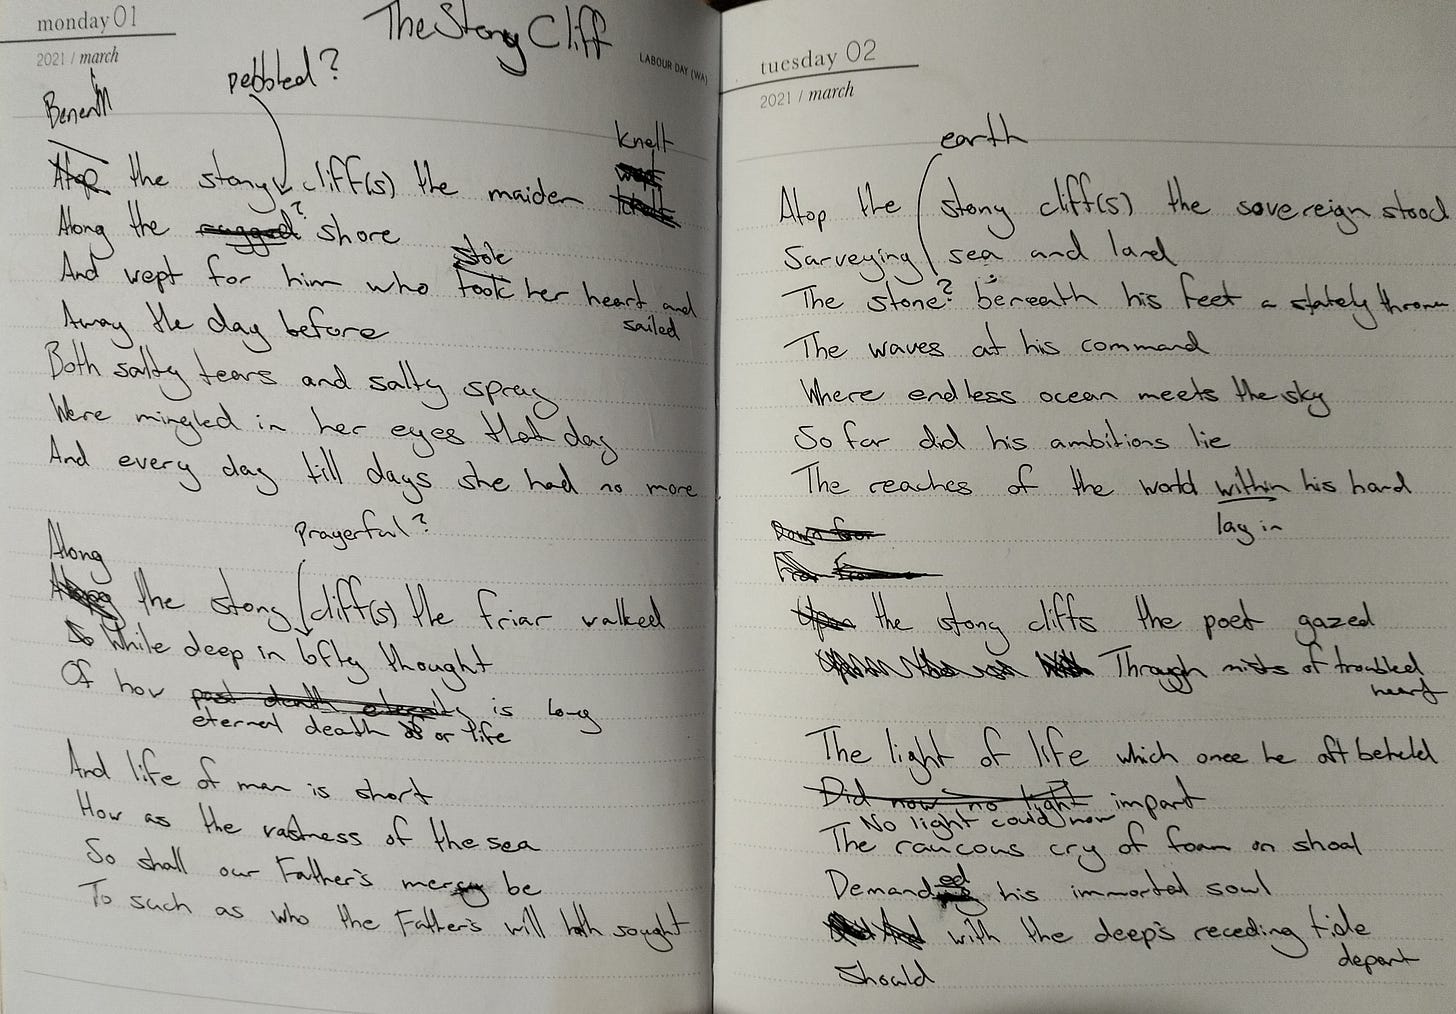 monday 01
2021 / march
The Stony Cliff
LABOUR DAY (WA)
pebbled?
Beneath
knelt
Atop the stony cliff(s) the maiden
Along the rugged? shore
stole
And wept for him who took her heart and
sailed
Away the day before
Both salty tears and salty spray
Were mingled in her eyes that day
And every day till days she had no more
Prayerful?
Along
the stony cliff(s) the friar walked
While deep in lofty thought
Of how past death eternity is long
eternal death or life
And life of man is short
How as the vastness of the sea
So shall our Father's mercy be
To such as who the Father's will hath sought
tuesday 02
2021 / march
earth
Atop the stony cliff(s) the sovereign stood
Surveying sea and land
The stone? beneath his feet a stately throne
The waves at his command
Where endless ocean meets the sky
So far did his ambitions lie
The reaches of the world within his hand
lay in
Down from
Upon the stony cliffs the poet gazed
Through mists of troubled
heart
The light of life which once he oft beheld
Did now no light impart
No light could now
The raucous cry of foam on shoal
ed
Demand his immortal soul
And with the deep's receding tide
depart
Should